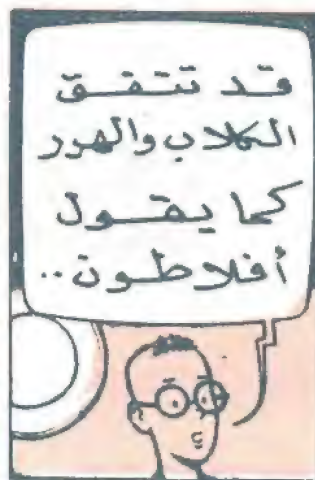 قد تتفق
الكلاب والهرر
كما يقول
أفلاطون..